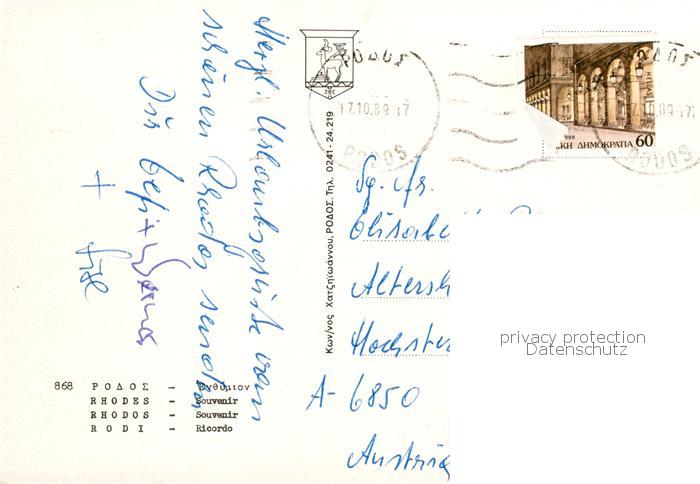 Herzl. Urlaubsgrüsse vom
schönen Rhodos senden
Dir
+
868 ΡΟΔΟΣ - Ἐνθύμιον
RHODES - Souvenir
RHODOS - Souvenir
RODI - Ricordo
Κων/νος Χατζηϊωάννου, ΡΟΔΟΣ, Τηλ. 0241-24.219
ΡΟΔΟΣ
17.10.89-17
RODOS
ΚΗ ΔΗΜΟΚΡΑΤΙΑ 60
Sg. Fr.
Elisabe
Altersh
Hochste
A-6850
Austria
privacy protection
Datenschutz